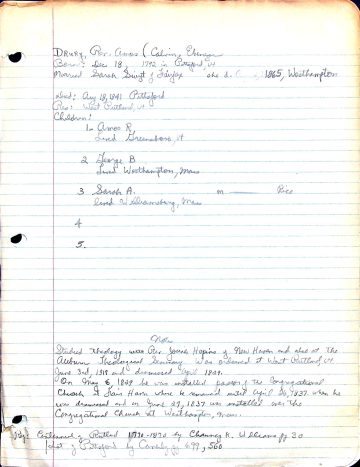 DRURY, Rev. Amos (Calvin, Ebenezer
Born: Dec 18, 1792 in Pittsford, Vt
Married Sarah Swift of Fairfax she d. 1865, Westhampton
Died: Aug 18, 1841 Pittsford
Res: West Rutland, Vt
Children:
1. Amos R.
Lived Greensboro, Vt
2 George B
Lived Westhampton, Mass
3 Sarah A. m Rice
lived Williamsburg, Mass
4
5.
Note
Studied theology with Rev. Josiah Hopkins of New Haven and also at the
Auburn Theological Seminary. Was ordained at West Rutland, Vt
June 3rd, 1819 and dismissed April 1829.
On May 6, 1829 he was installed pastor of the Congregational
Church at Fair Haven where he remained until April 20, 1837 when he
was dismissed and on June 29, 1837 was installed over the
Congregational Church at Westhampton, Mass.
Centennial of Rutland 1770-1870 by Chauncy K. Williams pg 30
Hist of Pittsford by Caverly pg 699, 560